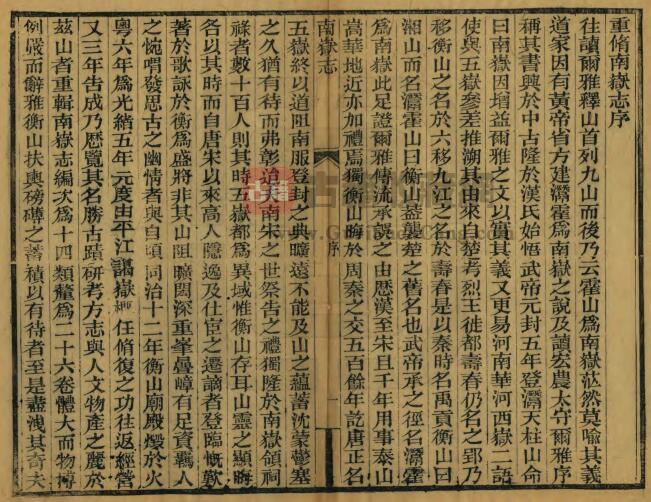 重脩南嶽志序
往讀爾雅釋山首列九山而後乃云霍山爲南嶽茫然莫喻其義
道家因有黃帝省方建灊霍爲南嶽之說及讀宏農太守爾雅序
稱其書興於中古隆於漢氏始悟武帝元封五年登灊天柱山命
曰南嶽因增益爾雅之文以實其義又更易河南華河西嶽二語
使與五嶽參差推溯其由來自楚考烈王徙都壽春仍名之郢乃
移衡山之名於六移九江之名於壽春是以秦時名禹貢衡山曰
湘山而名灊霍山曰衡山葢襲楚之舊名也武帝承之徑名灊霍
爲南嶽此足證爾雅傳流承誤之由歷漢至宋且千年用事泰山
嵩華地近亦加禮焉獨衡山晦於周秦之交五百餘年訖唐正名
南嶽志
序
一
五嶽終以道阻南服登封之典曠遠不能及山之蘊蓄沈蒙鬱塞
之久猶有待而弗彰迨夫南宋之世祭告之禮獨隆於南嶽領祠
祿者數十百人則其時五嶽都爲異域惟衡山存耳山靈之顯晦
各以其時而自唐宋以來高人隱逸及仕宦之遷謫者登臨慨歎
著於歌詠於衡爲盛將非其山阻曠閎深重峯疊嶂有足資羈人
之惋唱發思古之幽情者與自頃同治十二年衡山廟殿燬於火
粵六年爲光緒五年元度由平江謁嶽
任脩復之功往返經營
又三年告成乃歷覽其名勝古蹟研考方志與人文物產之麗於
茲山者重輯南嶽志編次爲十四類釐爲二十六卷體大而物博
例嚴而辭雅衡山扶輿磅礴之蓄積以有待者至是盡洩其奇夫